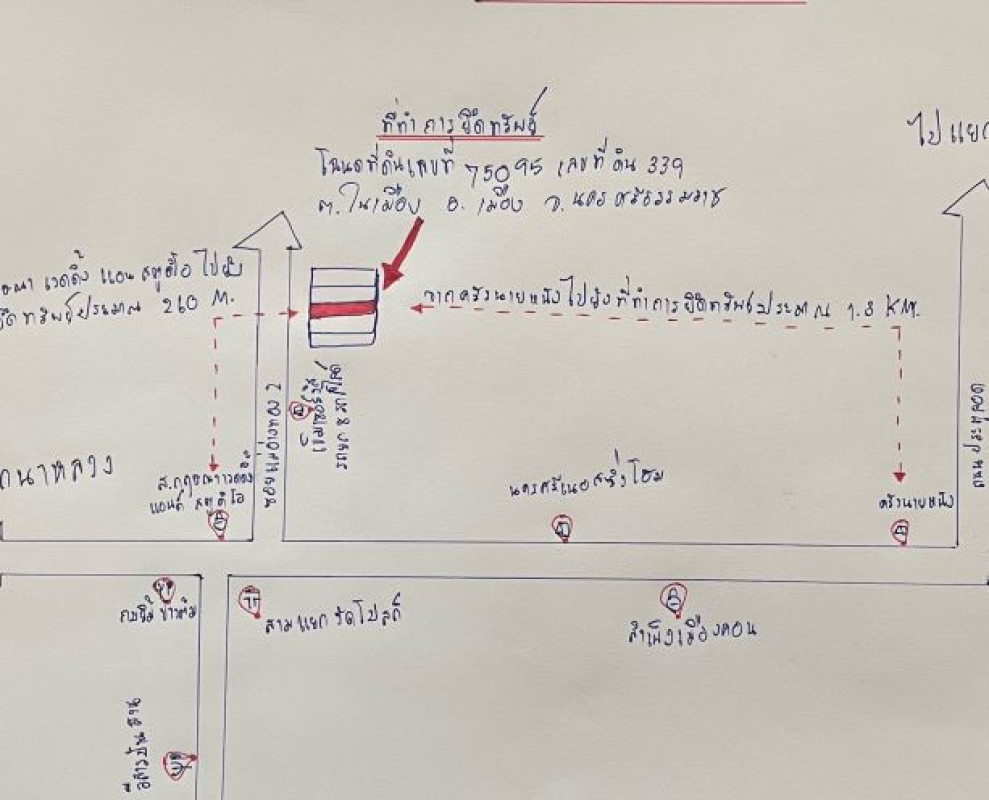 ที่ทำการยึดทรัพย์
โฉนดที่ดินเลขที่ 75095 เลขที่ดิน 339
ต.ในเมือง อ.เมือง จ.นครศรีธรรมราช
ไปแยก
เวดดิ้ง แอน สตูดิโอ ไปยัง
ยึดทรัพย์ประมาณ 260 M.
จากครัวนายหนังไปยังที่ทำการยึดทรัพย์ประมาณ 1.8 KM.
ซอยแม่อ่างทอง 2
นาหลวง
แอนด์ สตูดิโอ
นครศรีเนอสซิ่งโฮม
ครัวนายหนัง
ข้าวต้ม
สามแยก รัตโปสถ์
สำเพ็งเมืองคอน
อีสารบ้านย่าน